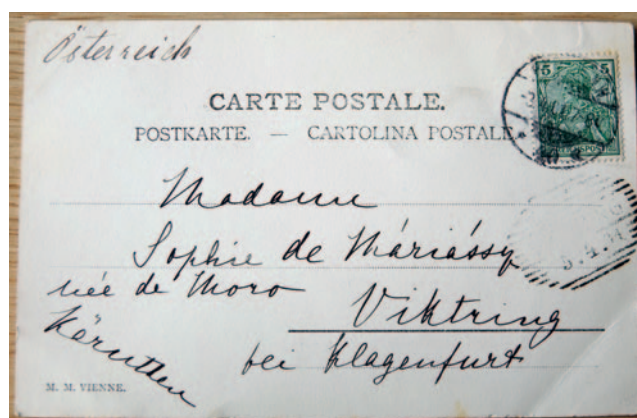 Österreich
5 5
CARTE POSTALE.
POSTKARTE. — CARTOLINA POSTALE
Madame
Sophie de Máriássy
née de Moro
Viktring
Kärnten
bei Klagenfurt
M. M. VIENNE.